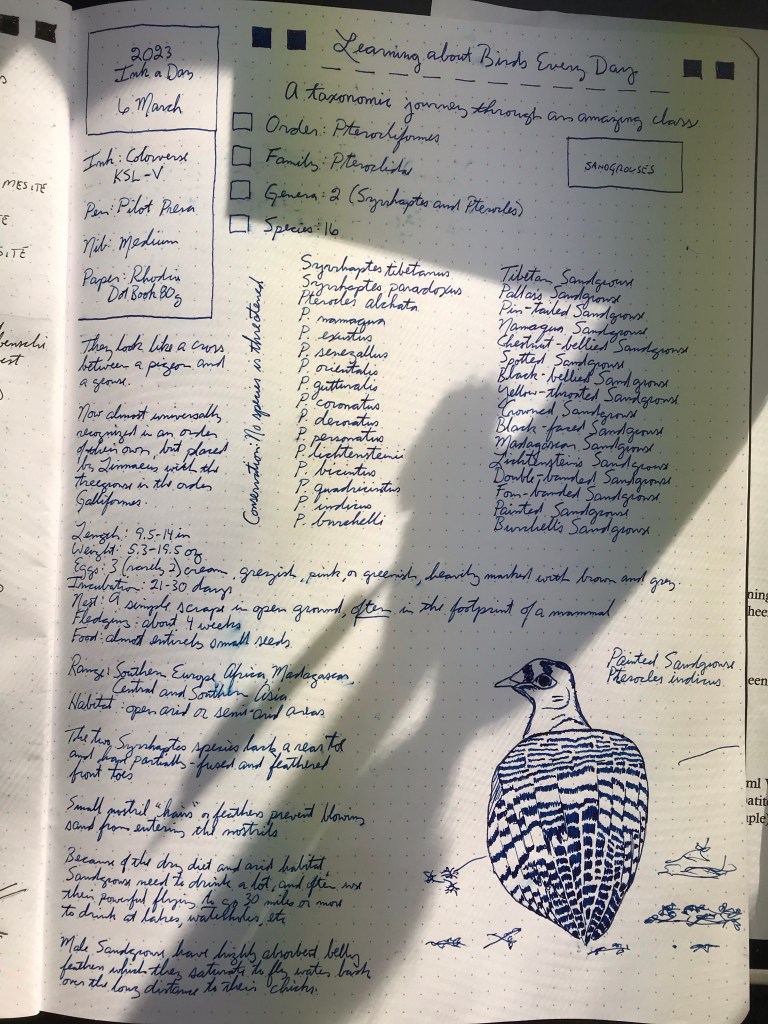 2023
Ink a Day
6 March
Ink: Colorverse
KSL-V
Pen: Pilot Prera
Nib: Medium
Paper: Rhodia
Dot Book 80g
Learning about Birds Every Day
A taxonomic journey through an amazing class
Order: Pterocliformes
Family: Pteroclidae
Genera: 2 (Syrrhaptes and Pterocles)
Species: 16
SANDGROUSES
Conservation: No species is threatened
Syrrhaptes tibetanus
Syrrhaptes paradoxus
Pterocles alchata
P. namaqua
P. exustus
P. senegallus
P. orientalis
P. gutturalis
P. coronatus
P. decoratus
P. personatus
P. lichtensteinii
P. bicinctus
P. quadricinctus
P. indicus
P. burchelli
Tibetan Sandgrouse
Pallas's Sandgrouse
Pin-tailed Sandgrouse
Namaqua Sandgrouse
Chestnut-bellied Sandgrouse
Spotted Sandgrouse
Black-bellied Sandgrouse
Yellow-throated Sandgrouse
Crowned Sandgrouse
Black-faced Sandgrouse
Madagascan Sandgrouse
Lichtenstein's Sandgrouse
Double-banded Sandgrouse
Four-banded Sandgrouse
Painted Sandgrouse
Burchell's Sandgrouse
They look like a cross
between a pigeon and
a grouse.
Now almost universally
recognized in an order
of their own, but placed
by Linnaeus with the
true grouse in the order
Galliformes.
Length: 9.5-14 in
Weight: 5.3-19.5 oz
Eggs: 3 (rarely 2) cream, greyish, pink, or greenish, heavily marked with brown and grey.
Incubation: 21-30 days
Nest: A simple scrape in open ground, often in the footprint of a mammal
Fledging: about 4 weeks
Food: almost entirely small seeds
Range: Southern Europe, Africa, Madagascar,
Central and Southern Asia
Habitat: open arid or semi-arid areas
The two Syrrhaptes species lack a rear toe
and have partially-fused and feathered
front toes
Small nostril "hairs" or feathers prevent blowing
sand from entering the nostrils
Because of the dry diet and arid habitat,
Sandgrouse need to drink a lot, and often use
their powerful flying to go 30 miles or more
to drink at lakes, waterholes, etc
Male Sandgrouse have highly absorbed belly
feathers which they saturate to fly water back
over the long distance to their chicks.
Painted Sandgrouse
Pterocles indicus